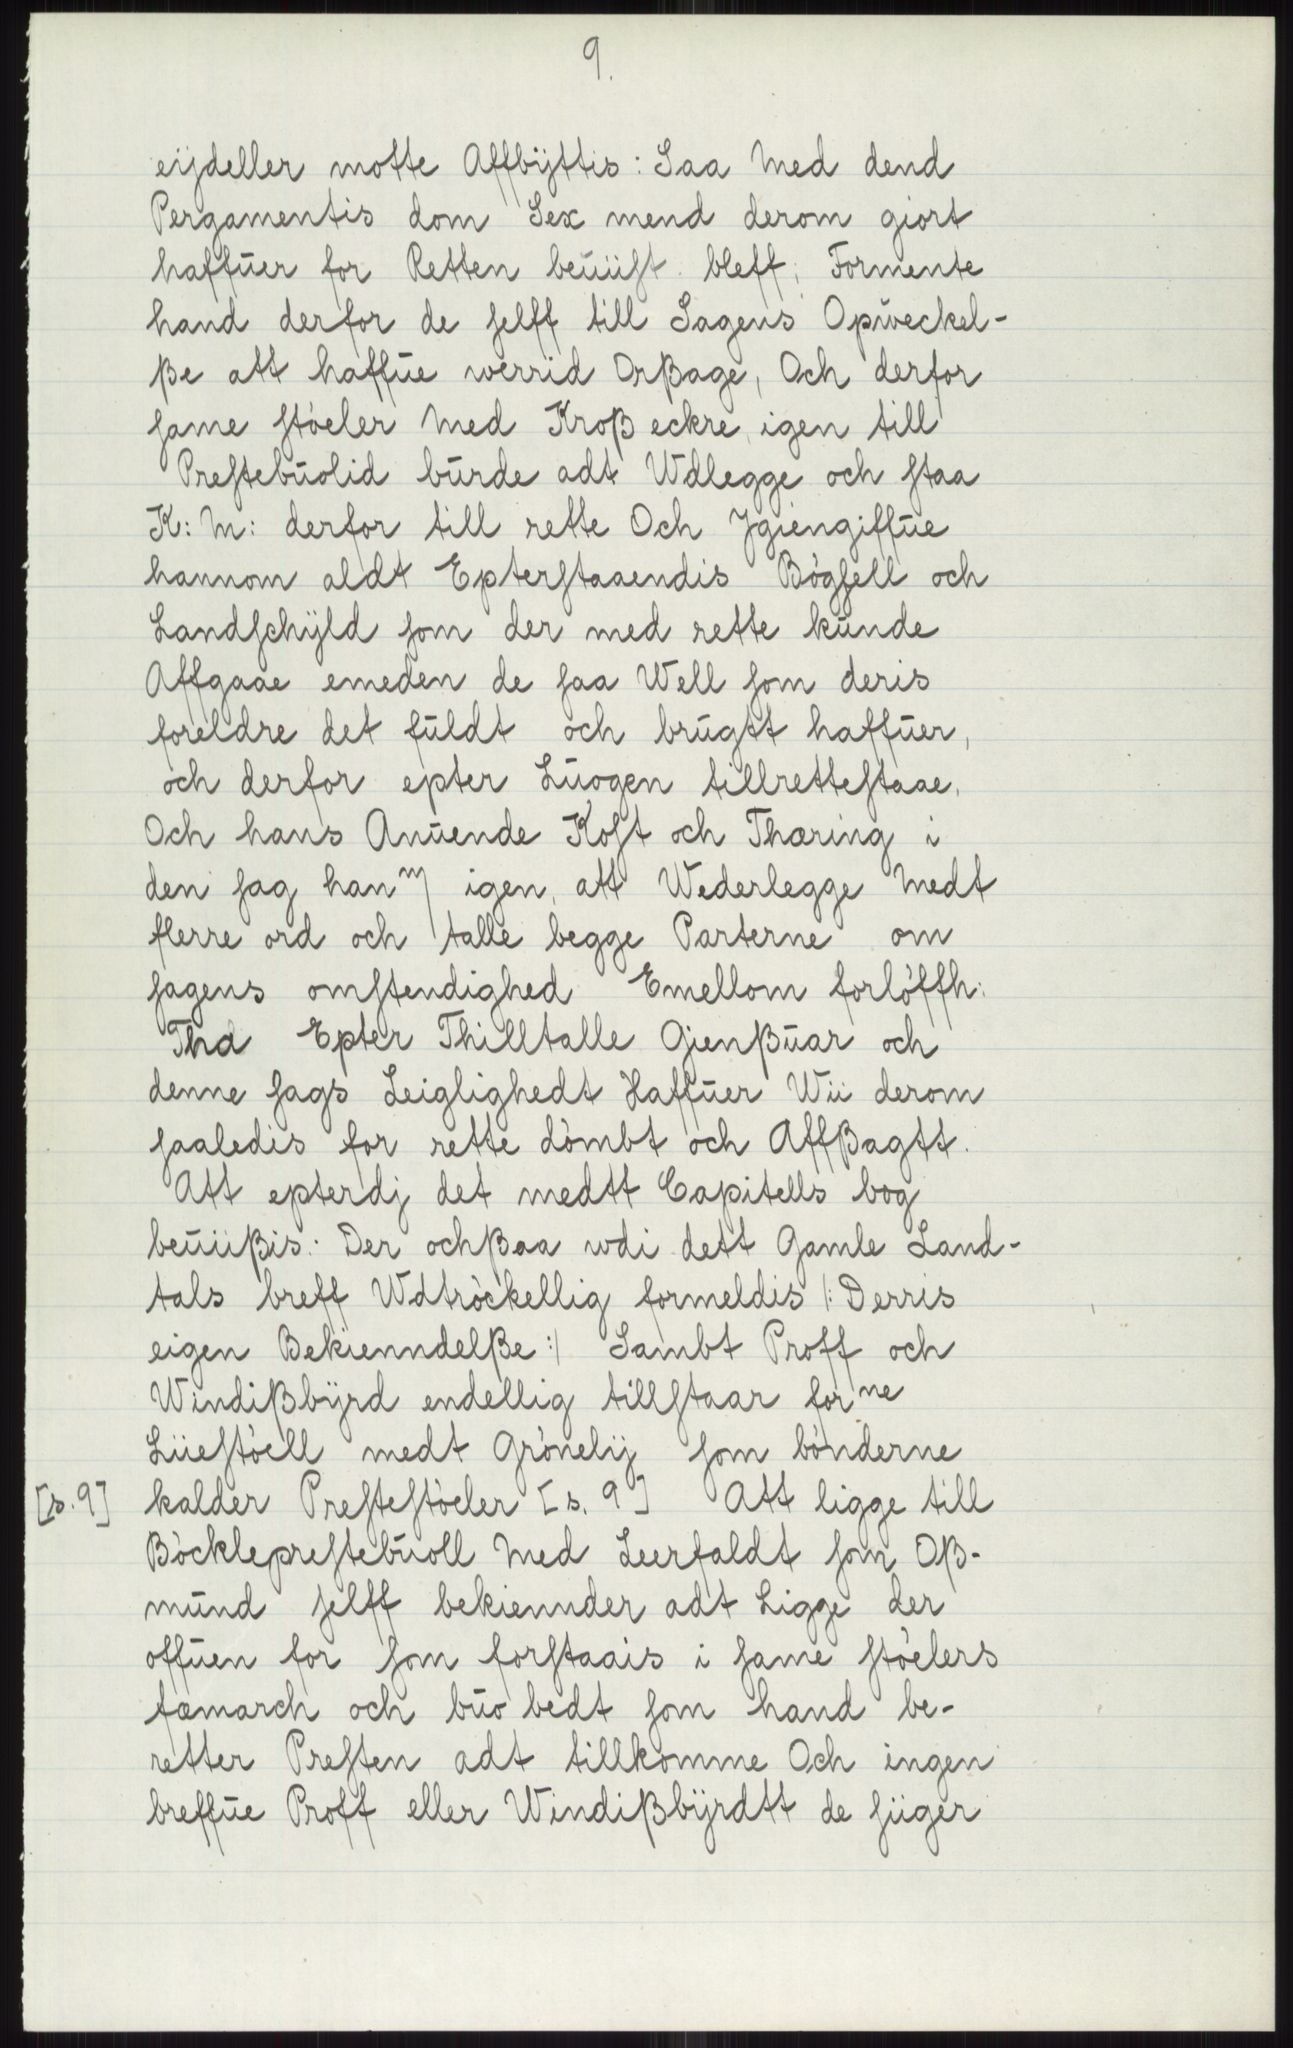 9.
eijdeller motte Affbÿttis: Saa Med dend
Pergamentis dom Sex mend derom giort
haffuer for Retten beuiist bleff, Formente
hand derfor de selff till Sagens Opweckel-
ße att haffue werrid Orßage, Och derfor
same stöeler Med Kroß eckre, igen till
Prestebuolid burde adt Wdlegge och staa
K: M: derfor till rette Och Jgiengiffue
hannom aldt Epterstaaendis Bögsell och
Landschÿld som der med rette kunde
Affgaae emeden de saa Well som deris
foreldre det fuldt och brugtt haffuer,
och derfor epter Luogen tillrettestaae.
Och hans Anuende Kost och Thæring i
den sag hanm igen, att Wederlegge Medt
flerre ord och talle begge Parterne om
sagens omstendighed Emellom forlöffh:
Tha Epter Thilltalle Gienßuar och
denne sags Leiglighedt Haffuer Wii derom
saaledis for rette dömbt och Affßagtt.
Att epterdj det medtt Capitells bog
beuiißis: Der ochßaa wdi dett Gamle Land-
tals breff Wdtröckellig formeldis /: Derris
eigen Bekienndelße :/ Sambt Proff och
Windißbÿrd endellig tillstaar forne
Lüestöell medt Grönelij som bönderne
[s. 9] kalder Prestestöeler [s. 9] Att ligge till
Böckleprestebuoll Med Leerfaldt som Oß-
mund selff bekiennder adt Ligge der
offuen for som forstaais i same stöelers
fæmarch och buo bedt som hand be-
retter Presten adt tillkomme Och ingen
breffue Proff eller Windißbÿrdtt de siiger